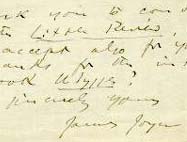 you to con
the Little Review,
accept also for yo
anks for the in
ook Ulysses?
Sincerely yours
James Joyce